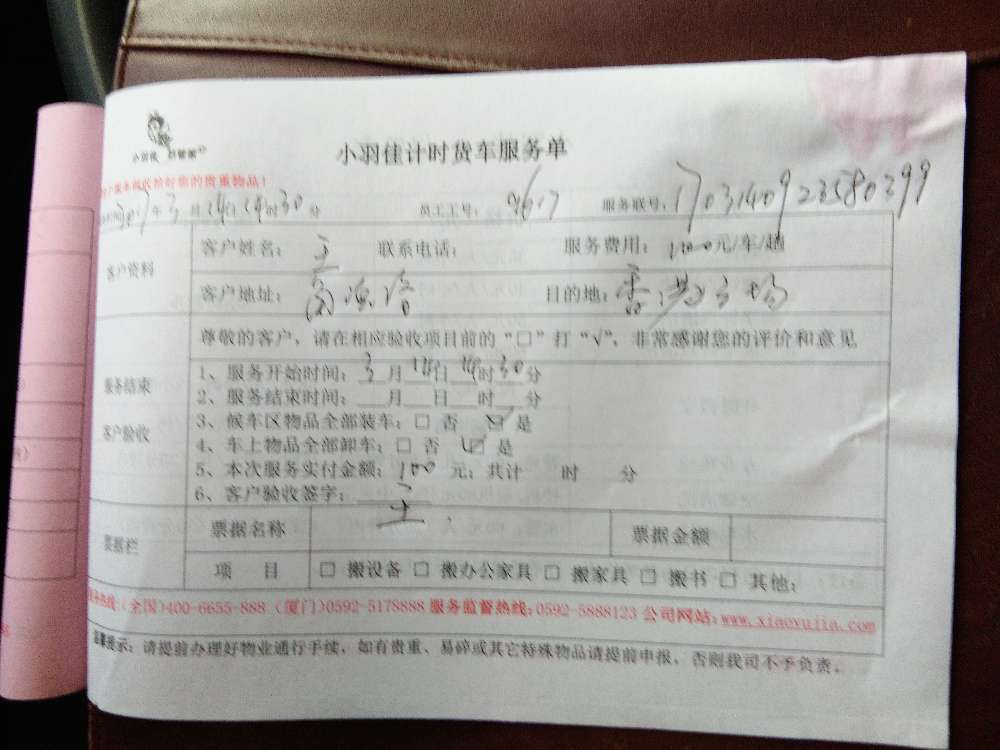 小羽佳计时货车服务单
2017年3月14日14时30分 员工工号: 9617 服务联号: 17031409223580399
客户资料
客户姓名: 王 联系电话: 服务费用: 100元/车/趟
客户地址: 目的地:
尊敬的客户,请在相应验收项目前的“□”打“√”,非常感谢您的评价和意见
服务结束
客户验收
1、服务开始时间: 3月14日14时30分
2、服务结束时间: 月 日 时 分
3、候车区物品全部装车: □ 否 ☑ 是
4、车上物品全部卸车: □ 否 ☑ 是
5、本次服务实付金额: 100 元; 共计 时 分
6、客户验收签字: 王
票据栏
票据名称 票据金额
项 目 □ 搬设备 □ 搬办公家具 □ 搬家具 □ 搬书 □ 其他:
热线:(全国)400-6655-888 (厦门)0592-5178888 服务监督热线:0592-5888123 公司网站:www.xiaoyujia.com
提示: 请提前办理好物业通行手续,如有贵重、易碎或其它特殊物品请提前申报,否则我司不予负责。